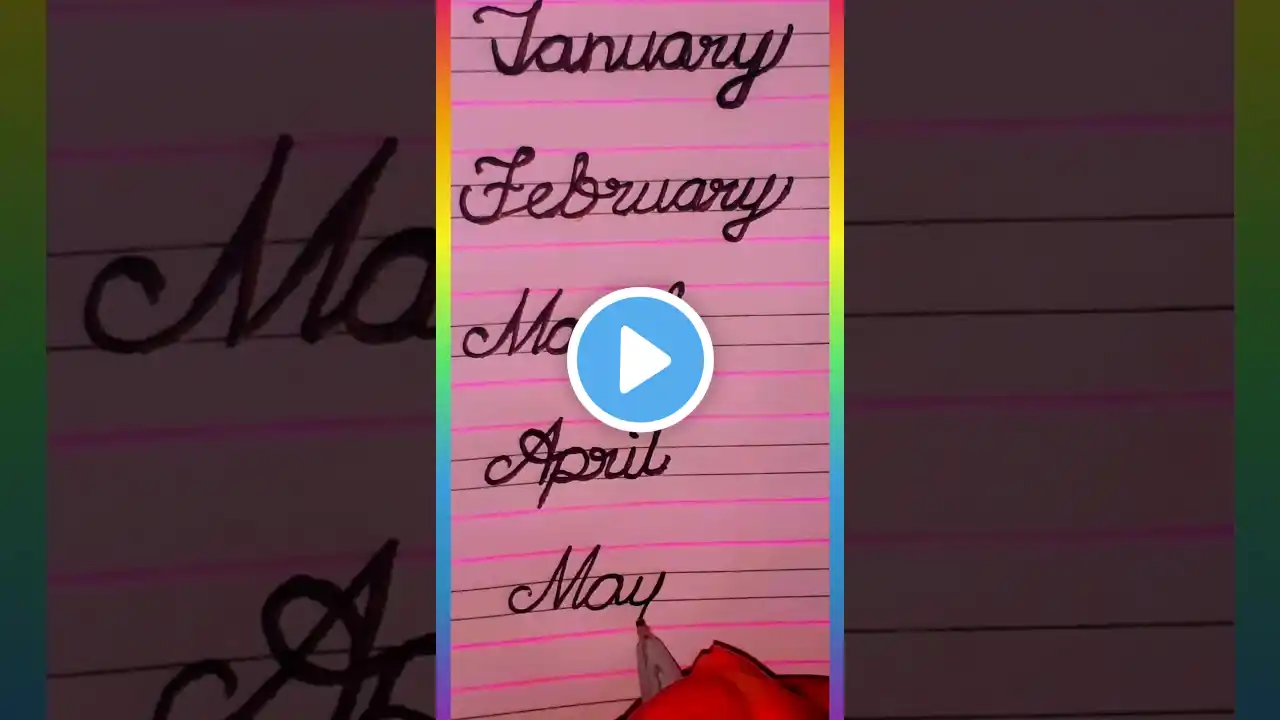 January
February
April
May